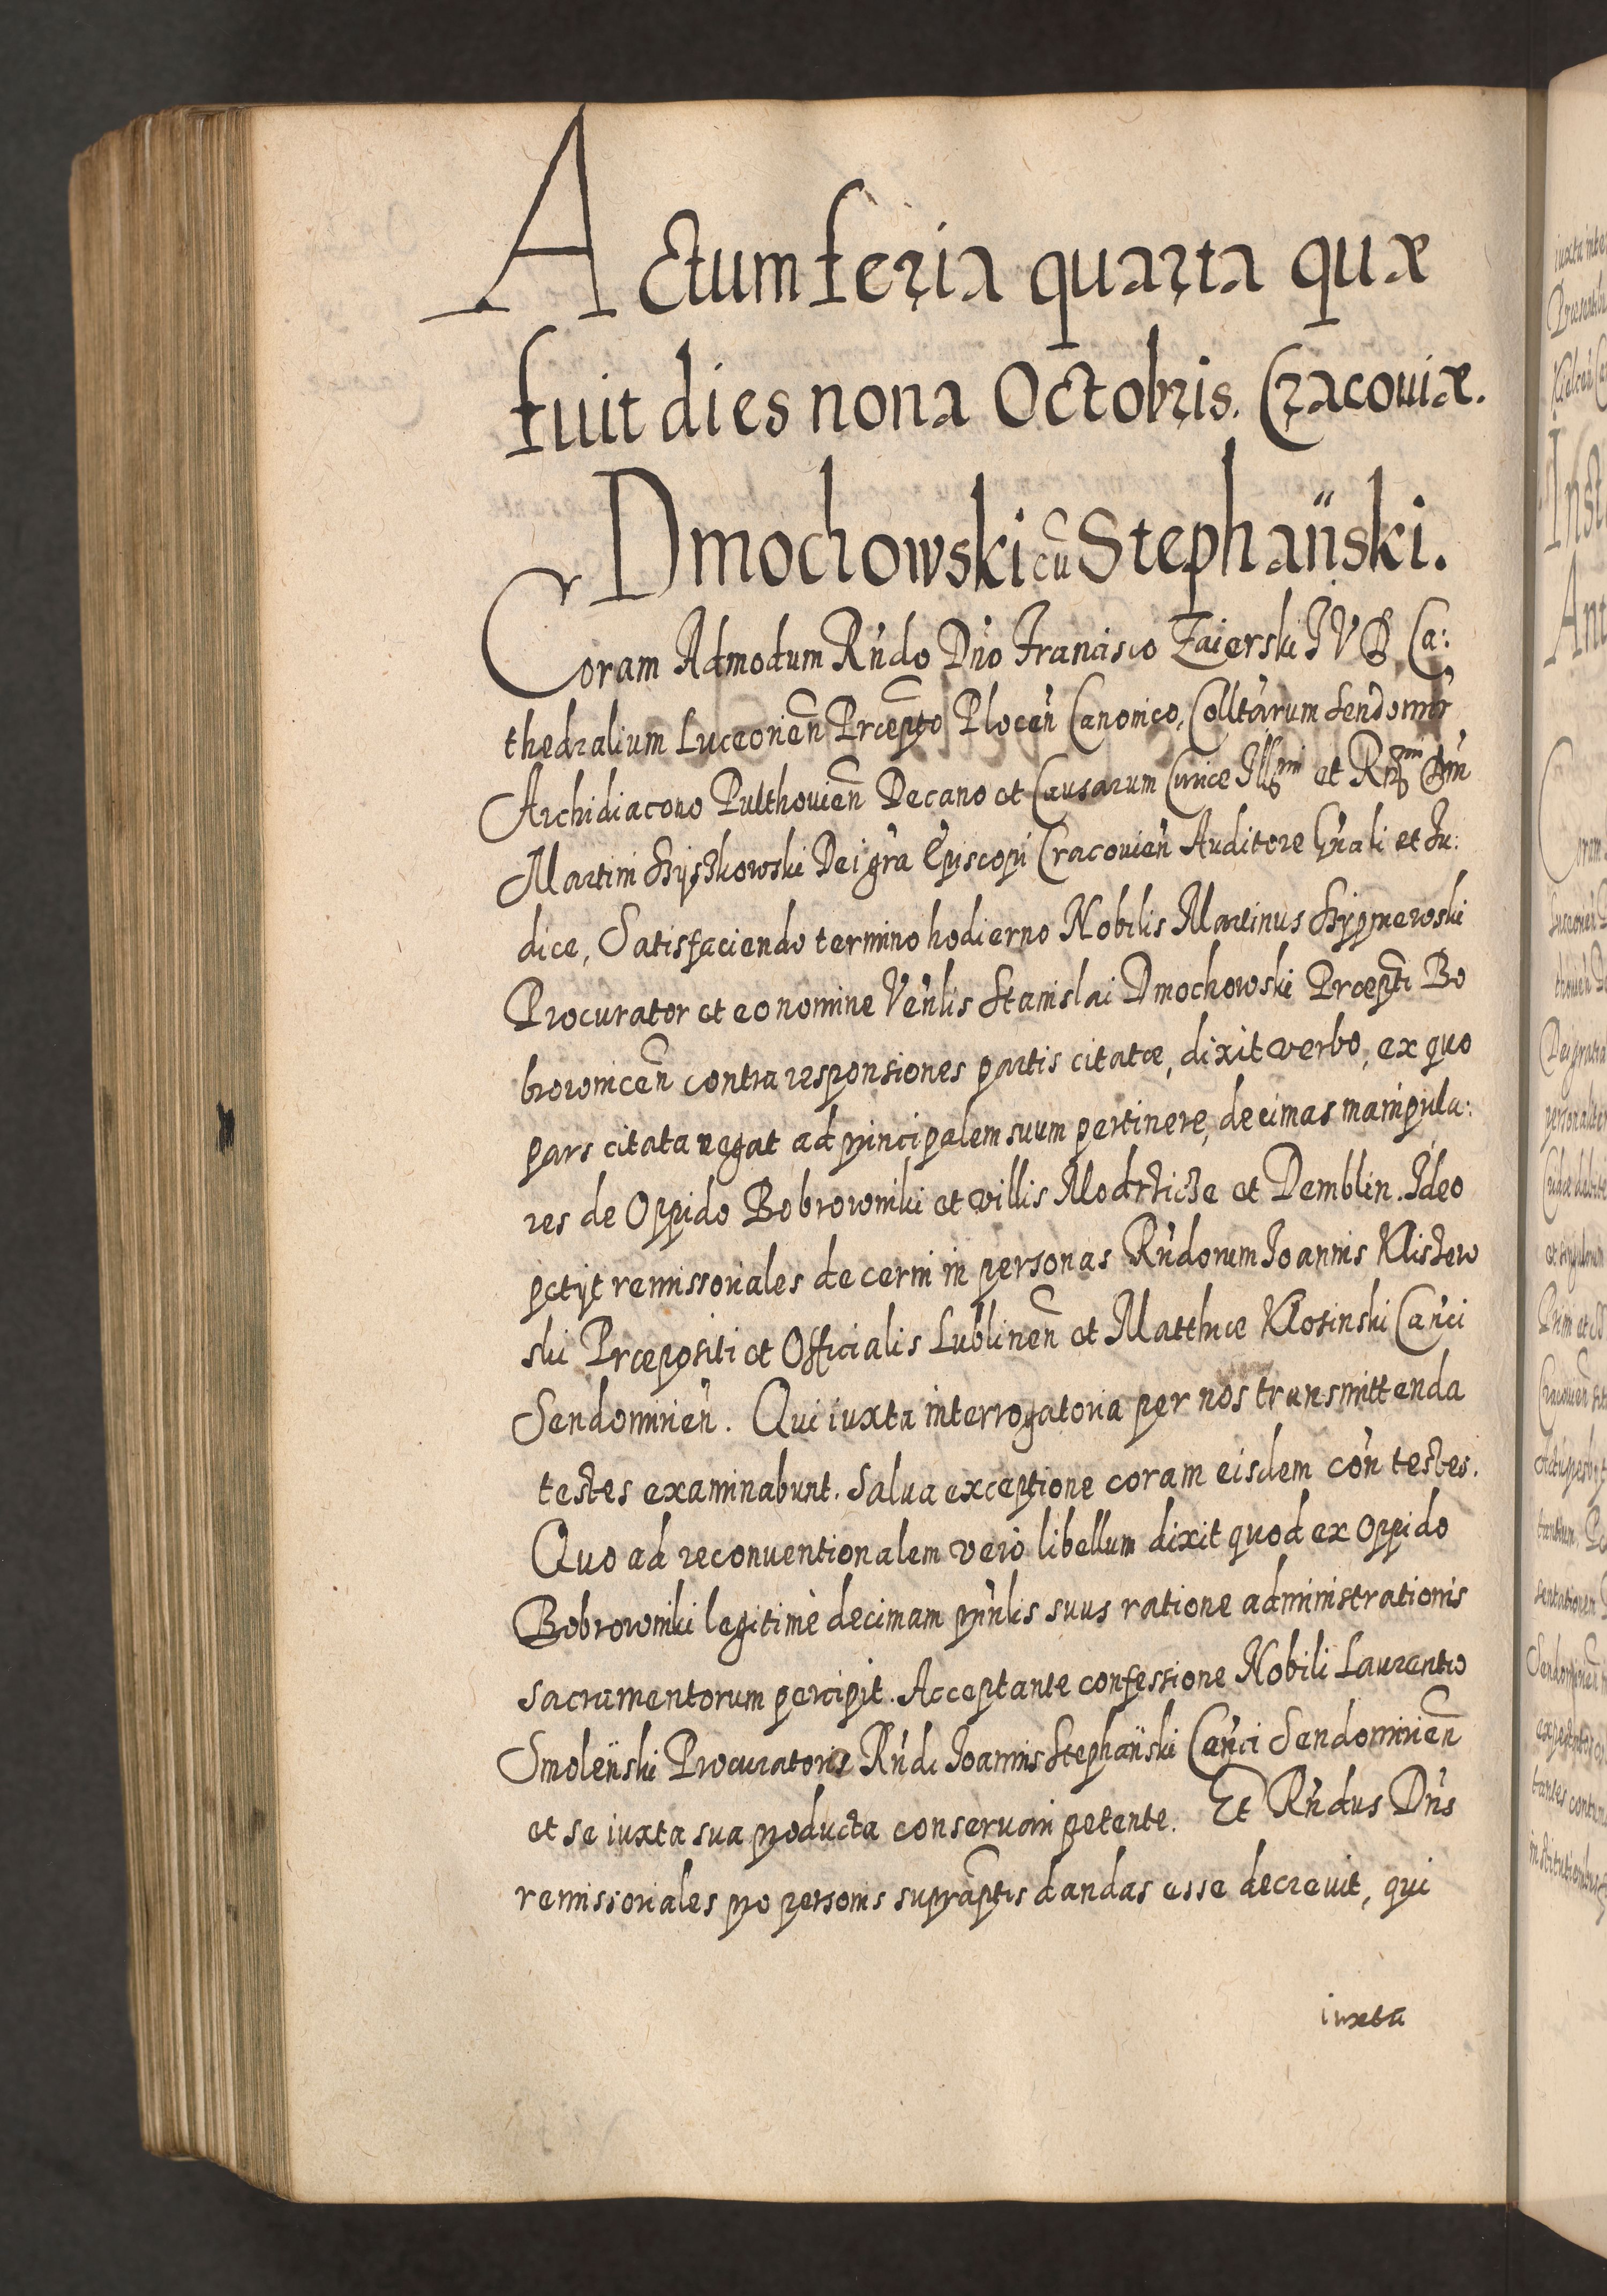 Actum feria quarta quæ
fuit dies nona Octobris. Cracouiæ.
Dmochowski cũ Stephañski.
Coram Admodum Rńdo Dńo Francisco Zaierski IVD, Ca:
thedralium Luceorien̄ Præpto Plocen̄ Canonico, Colltarum Sendomir̄
Archidiacono Pulthouien̄ Decano et Causarum Curiæ Illmi et Rmi Dni
Martini Szyszkowski Dei gra Episcopi Cracouien̄ Auditore Gnali et Iu:
dice, Satisfaciendo termino hodierno Nobilis Martinus
Procurator et eo nomine Venlis Stanislai Dmochowski Præpti Bo
brownicen̄ contra responsiones partis citatæ, dixit verbo, ex quo
pars citata negat ad principalem suum pertinere, decimas manipula:
res de Oppido Bobrowniki et villis Modrzicze et Demblin. Ideo
petijt remissoriales decerni in personas Rńdorum Ioannis Klistow
ski Præpositi et Officialis Lublinen̄ et Matthiæ Klosinski Canci
Sendomirien̄. Qui iuxta interrogatoria per nos transmittenda
testes examinabunt. Salua exceptione coram eisdem con̄ testes.
Quo ad reconuentionalem vero libellum dixit quod ex Oppido
Bobrowniki legitimè decimam prin̄lis suus ratione administrationis
sacramentorum percipit. Acceptante confessione Nobili Laurentio
Smoleñski Procuratoris Rńdi Ioannis Stephañski Can̄ci Sendomirien̄
et se iuxta sua producta conseruari petente. Et Rńdus Dńs
remissoriales pro personis supraptis dandas esse decreuit, qui
iuxta